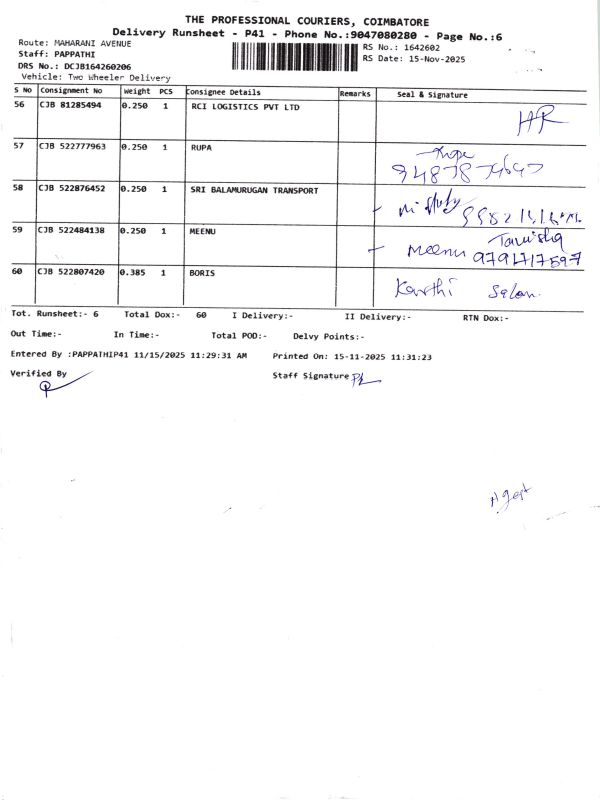 THE PROFESSIONAL COURIERS, COIMBATORE
Delivery Runsheet - P41 - Phone No.:9047080280 - Page No.:6
Route: MAHARANI AVENUE
RS No.: 1642602
Staff: PAPPATHI
RS Date: 15-Nov-2025
DRS No.: DCJB164260206
Vehicle: Two Wheeler Delivery
S No Consignment No Weight PCS Consignee Details Remarks Seal & Signature
56 CJB 81285494 0.250 1 RCI LOGISTICS PVT LTD HR
57 CJB 522777963 0.250 1 RUPA
58 CJB 522876452 0.250 1 SRI BALAMURUGAN TRANSPORT
59 CJB 522484138 0.250 1 MEENU Meenu
60 CJB 522807420 0.385 1 BORIS Karthi Selan
Tot. Runsheet:- 6 Total Dox:- 60 I Delivery:- II Delivery:- RTN Dox:-
Out Time:- In Time:- Total POD:- Delvy Points:-
Entered By :PAPPATHIP41 11/15/2025 11:29:31 AM Printed On: 15-11-2025 11:31:23
Verified By Staff Signature